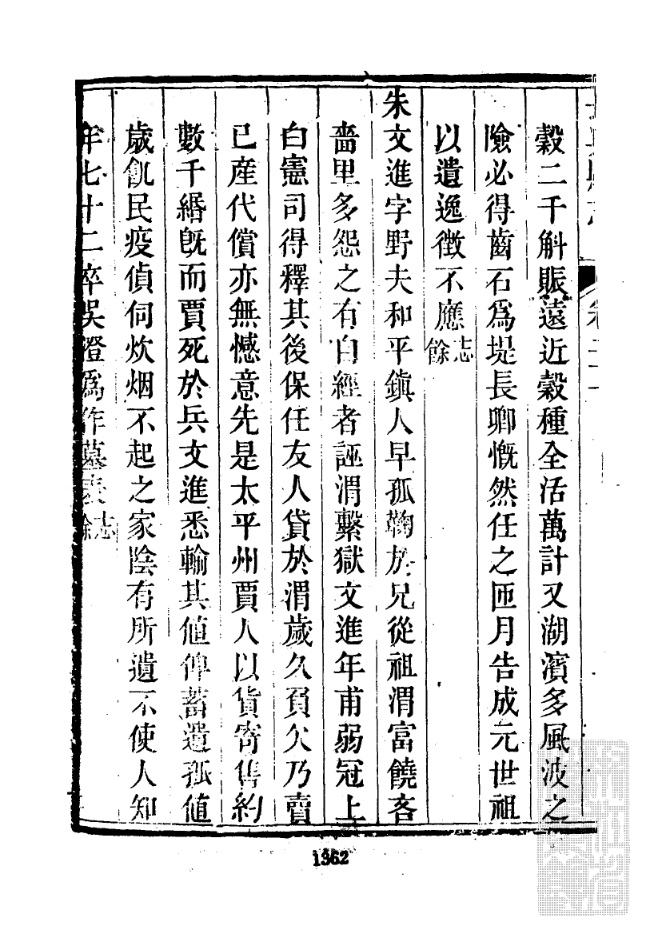 穀二千斛賑遠近穀種全活萬計又湖濱多風波之
險必得齒石爲堤長卿慨然任之匝月告成元世祖
以遺逸徵不應志餘
朱文進字野夫和平鎭人早孤鞠於兄從祖渭富饒吝
嗇里多怨之有自經者誣渭繫獄文進年甫弱冠上
白憲司得釋其後保任友人貸於渭歲久負欠乃賣
已產代償亦無憾意先是太平州賈人以貨寄售約
數千緡旣而賈死於兵文進悉輸其值俾蓄遺孤值
歲飢民疫偵伺炊烟不起之家陰有所遺不使人知
年七十二卒吳澄爲作墓表志餘
1362